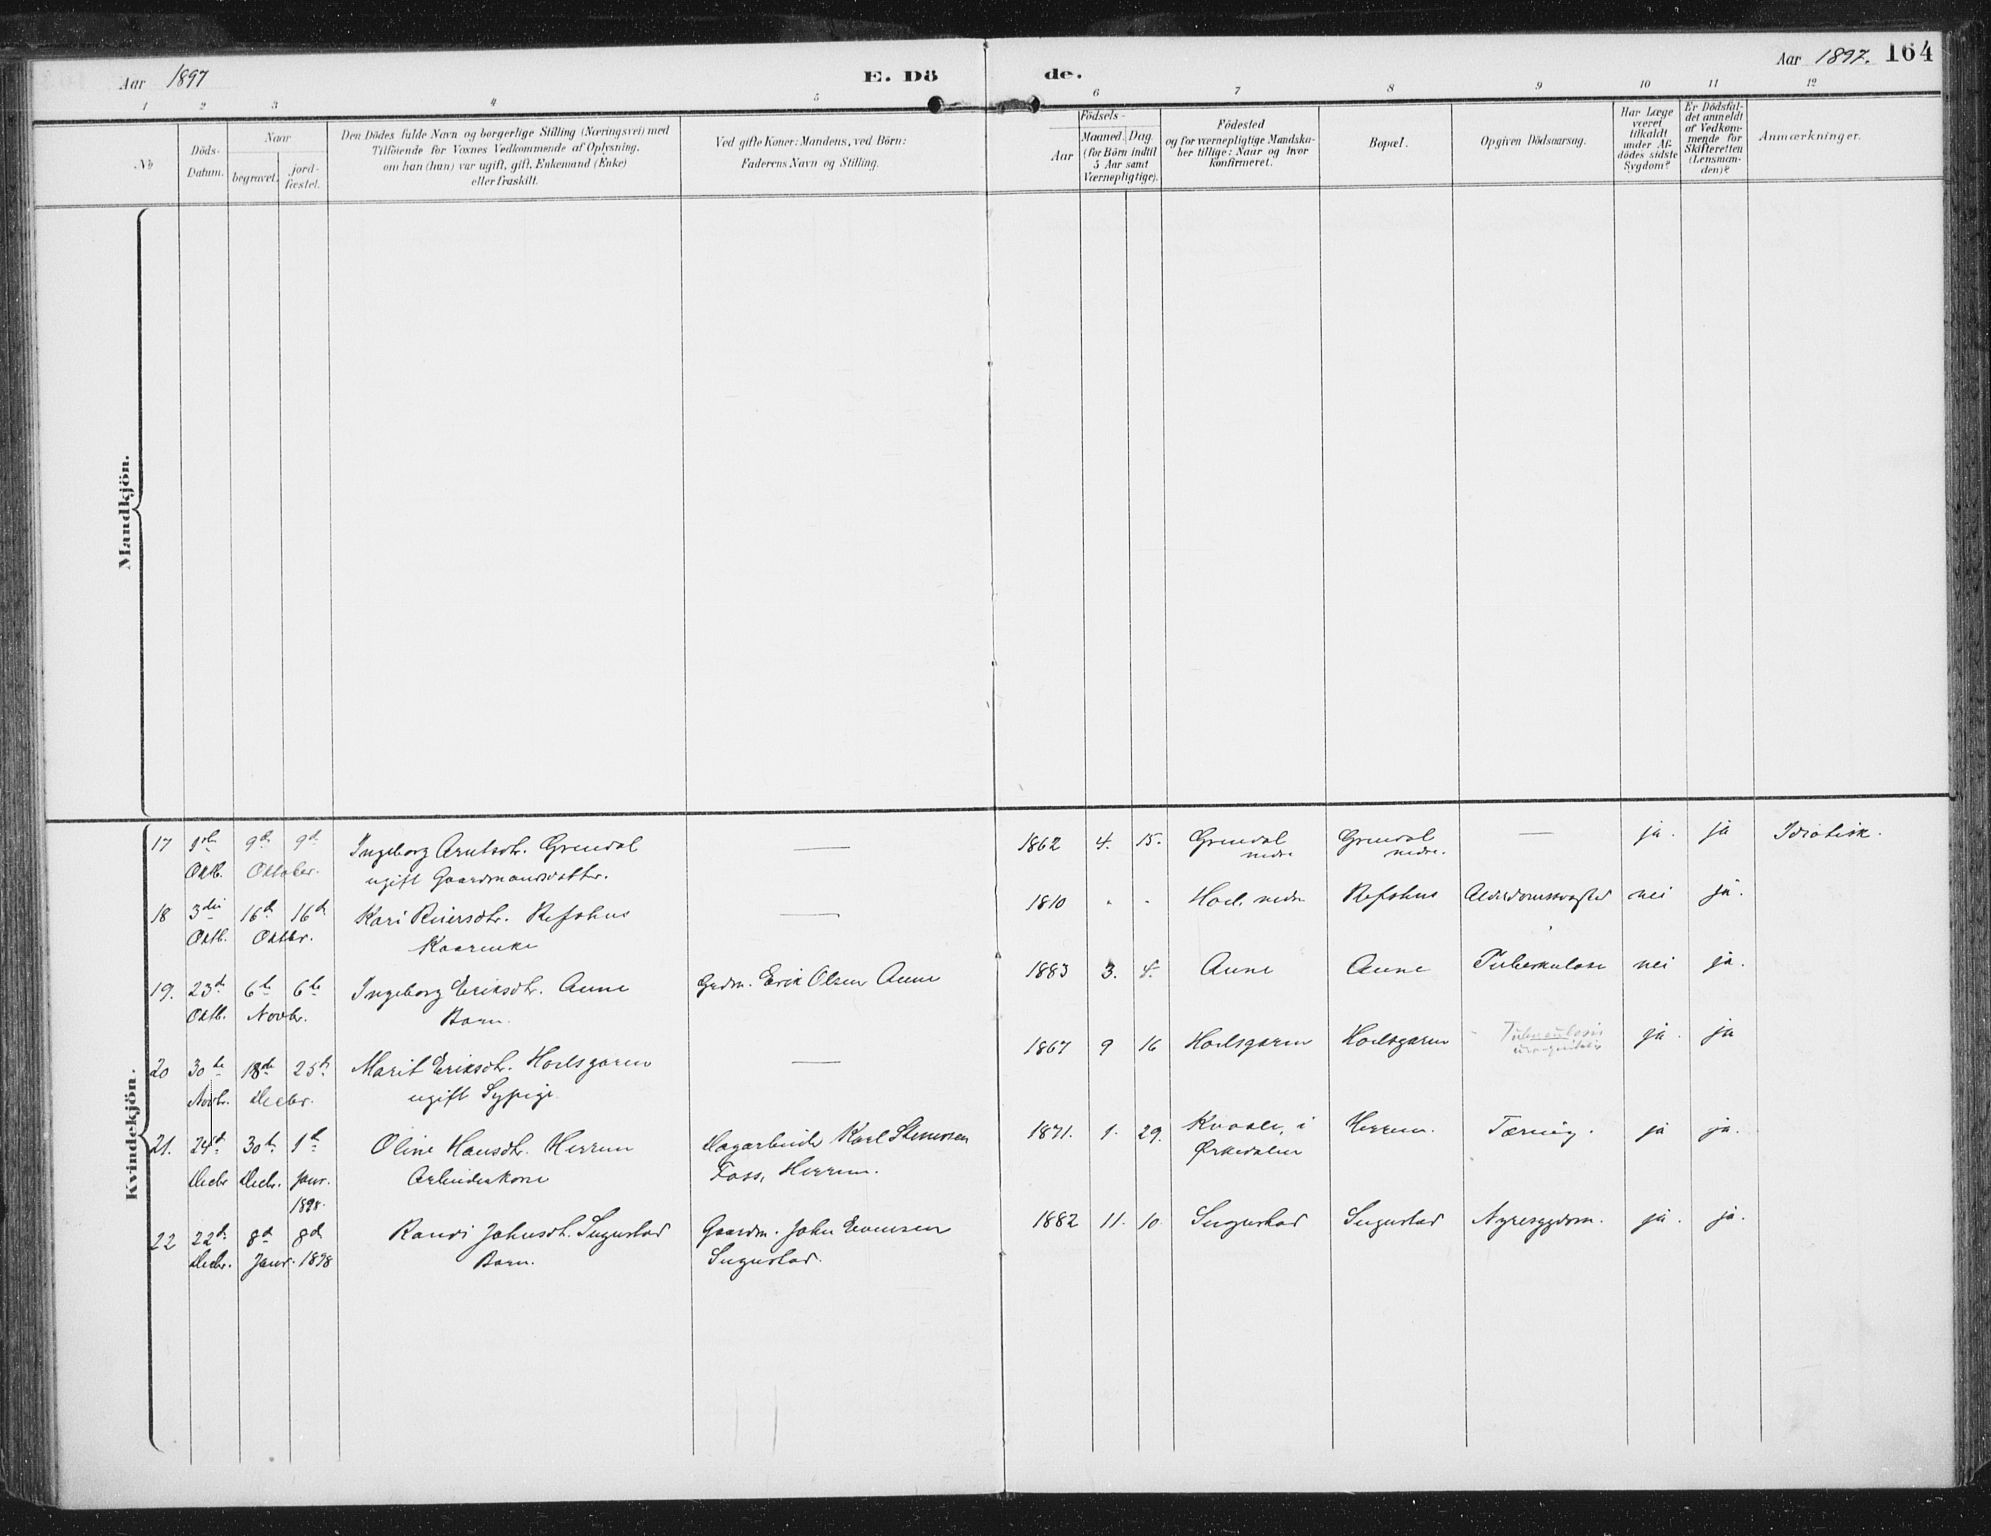 Aar 1897
E. Dö
de.
Aar 1897. 164
1 2 3 4 5 6 7 8 9 10 11 12
No
Döds-
Datum.
Naar
begravet.
jord-
fæstet.
Den Dödes fulde Navn og borgerlige Stilling (Næringsvei) med
Tilföiende for Voxnes Vedkommende af Oplysning,
om han (hun) var ugift, gift, Enkemand (Enke)
eller fraskilt.
Ved gifte Koner: Mandens, ved Börn:
Faderens Navn og Stilling.
Födsels-
Aar
Maaned. Dag.
(for Börn indtil
5 Aar samt
Værnepligtige).
Födested
og for værnepligtige Mandska-
ber tillige: Naar og hvor
konfirmeret.
Bopæl.
Opgiven Dödsaarsag.
Har Læge
været
tilkaldt
under Af-
dödes sidste
Sygdom?
Er Dödsfal-
det anmeldt
af Vedkom-
mende for
Skifteretten
(Lensman-
den)?
Anmærkninger.
Mandkjön.
Kvindekjön.
17 9de 9d Ingeborg Arntsdtr. Grendal — 1862 4. 15. Grendal Grendal — ja. ja Idiotisk.
Oktb. Oktober. ugift Gaardmandsdatter. nedre nedre.
18 3die 16de 16de Kari Reiersdtr. Refshus — 1810 Hoel, nedre Refshus Alderdomssvaghed nei ja.
Oktb. Oktbr. Kaarenke
19. 23de 6te 6te Ingeborg Eriksdtr. Aune Grdm. Erik Olsen Aune 1883 3. 4. Aune Aune Tuberkulose nei ja.
Oktb. Novbr. Barn.
20 30te 18de 25de Marit Eriksdtr. Hoelsgaren — 1867 9 16 Hoelsgaren Hoelsgaren Tuberculosis ja. ja
Novbr. Decbr. ugift Sypige
21. 24de 30te 1te Oline Hansdtr. Herrem Dagarbeider Karl Stenersen 1871. 1. 29. Kvaale, i Herrem. Tæring. ja ja.
Decbr Decbr. Janr. Arbeiderkone Foss, Herrem. Ørkedalen
1898.
22 22de 8de 8de Randi Johnsdtr. Sugustad Gaardm. John Evensen 1882 11. 10. Sugustad Sugustad Nyresygdom. ja. ja.
Decbr. Janr. 1898 Barn. Sugustad.